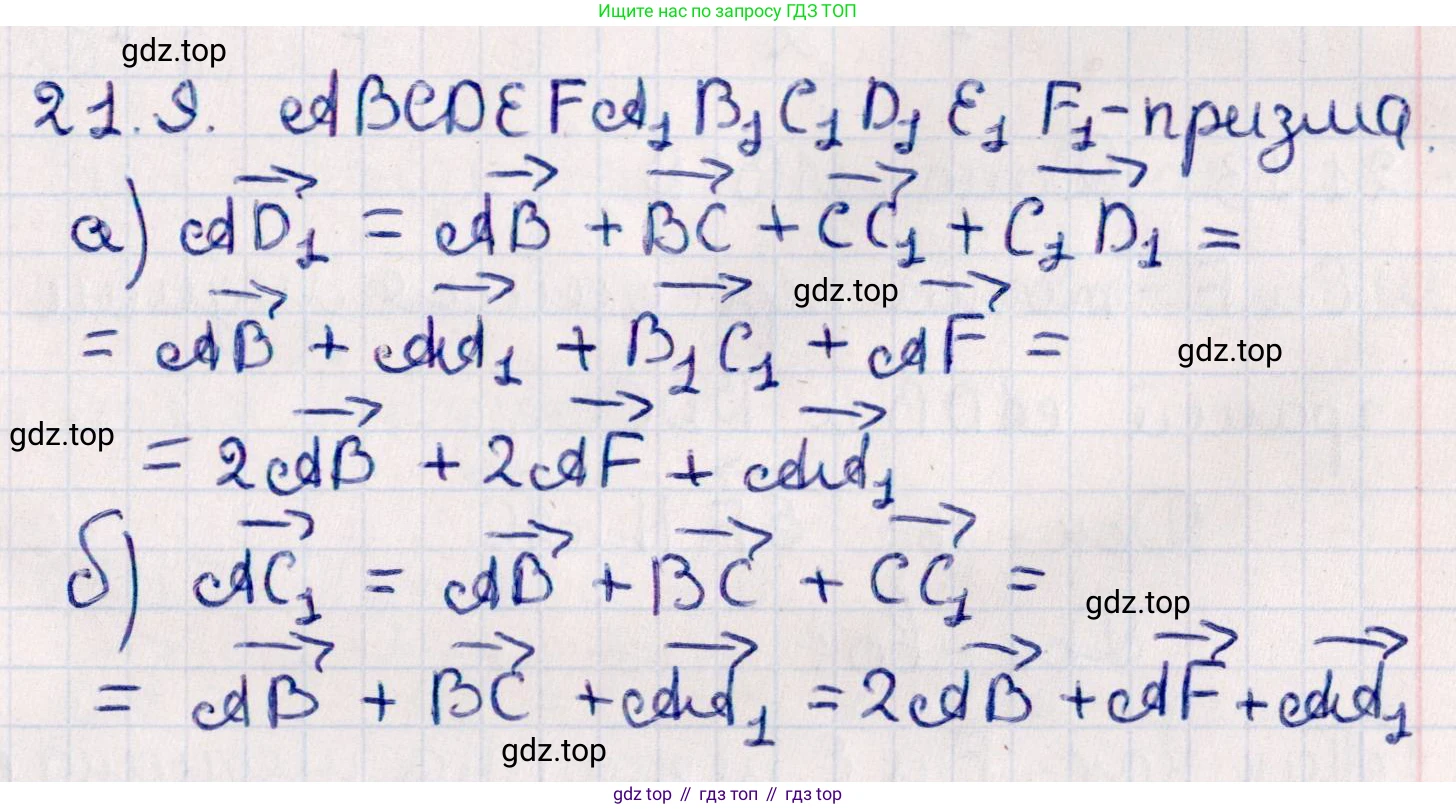 Ищите нас по запросу ГДЗ ТОП
gdz.top
21.9. ABCDEFA₁B₁C₁D₁E₁F₁-призма.
а) AD₁ = AB + BC + CC₁ + C₁D₁ =
gdz.top
= AB + AA₁ + B₁C₁ + AF =
gdz.top
gdz.top
= 2AB + 2AF + AA₁
б) AC₁ = AB + BC + CC₁ =
gdz.top
= AB + BC + AA₁ = 2AB + AF + AA₁
gdz.top
gdz top // гдз топ // gdz top